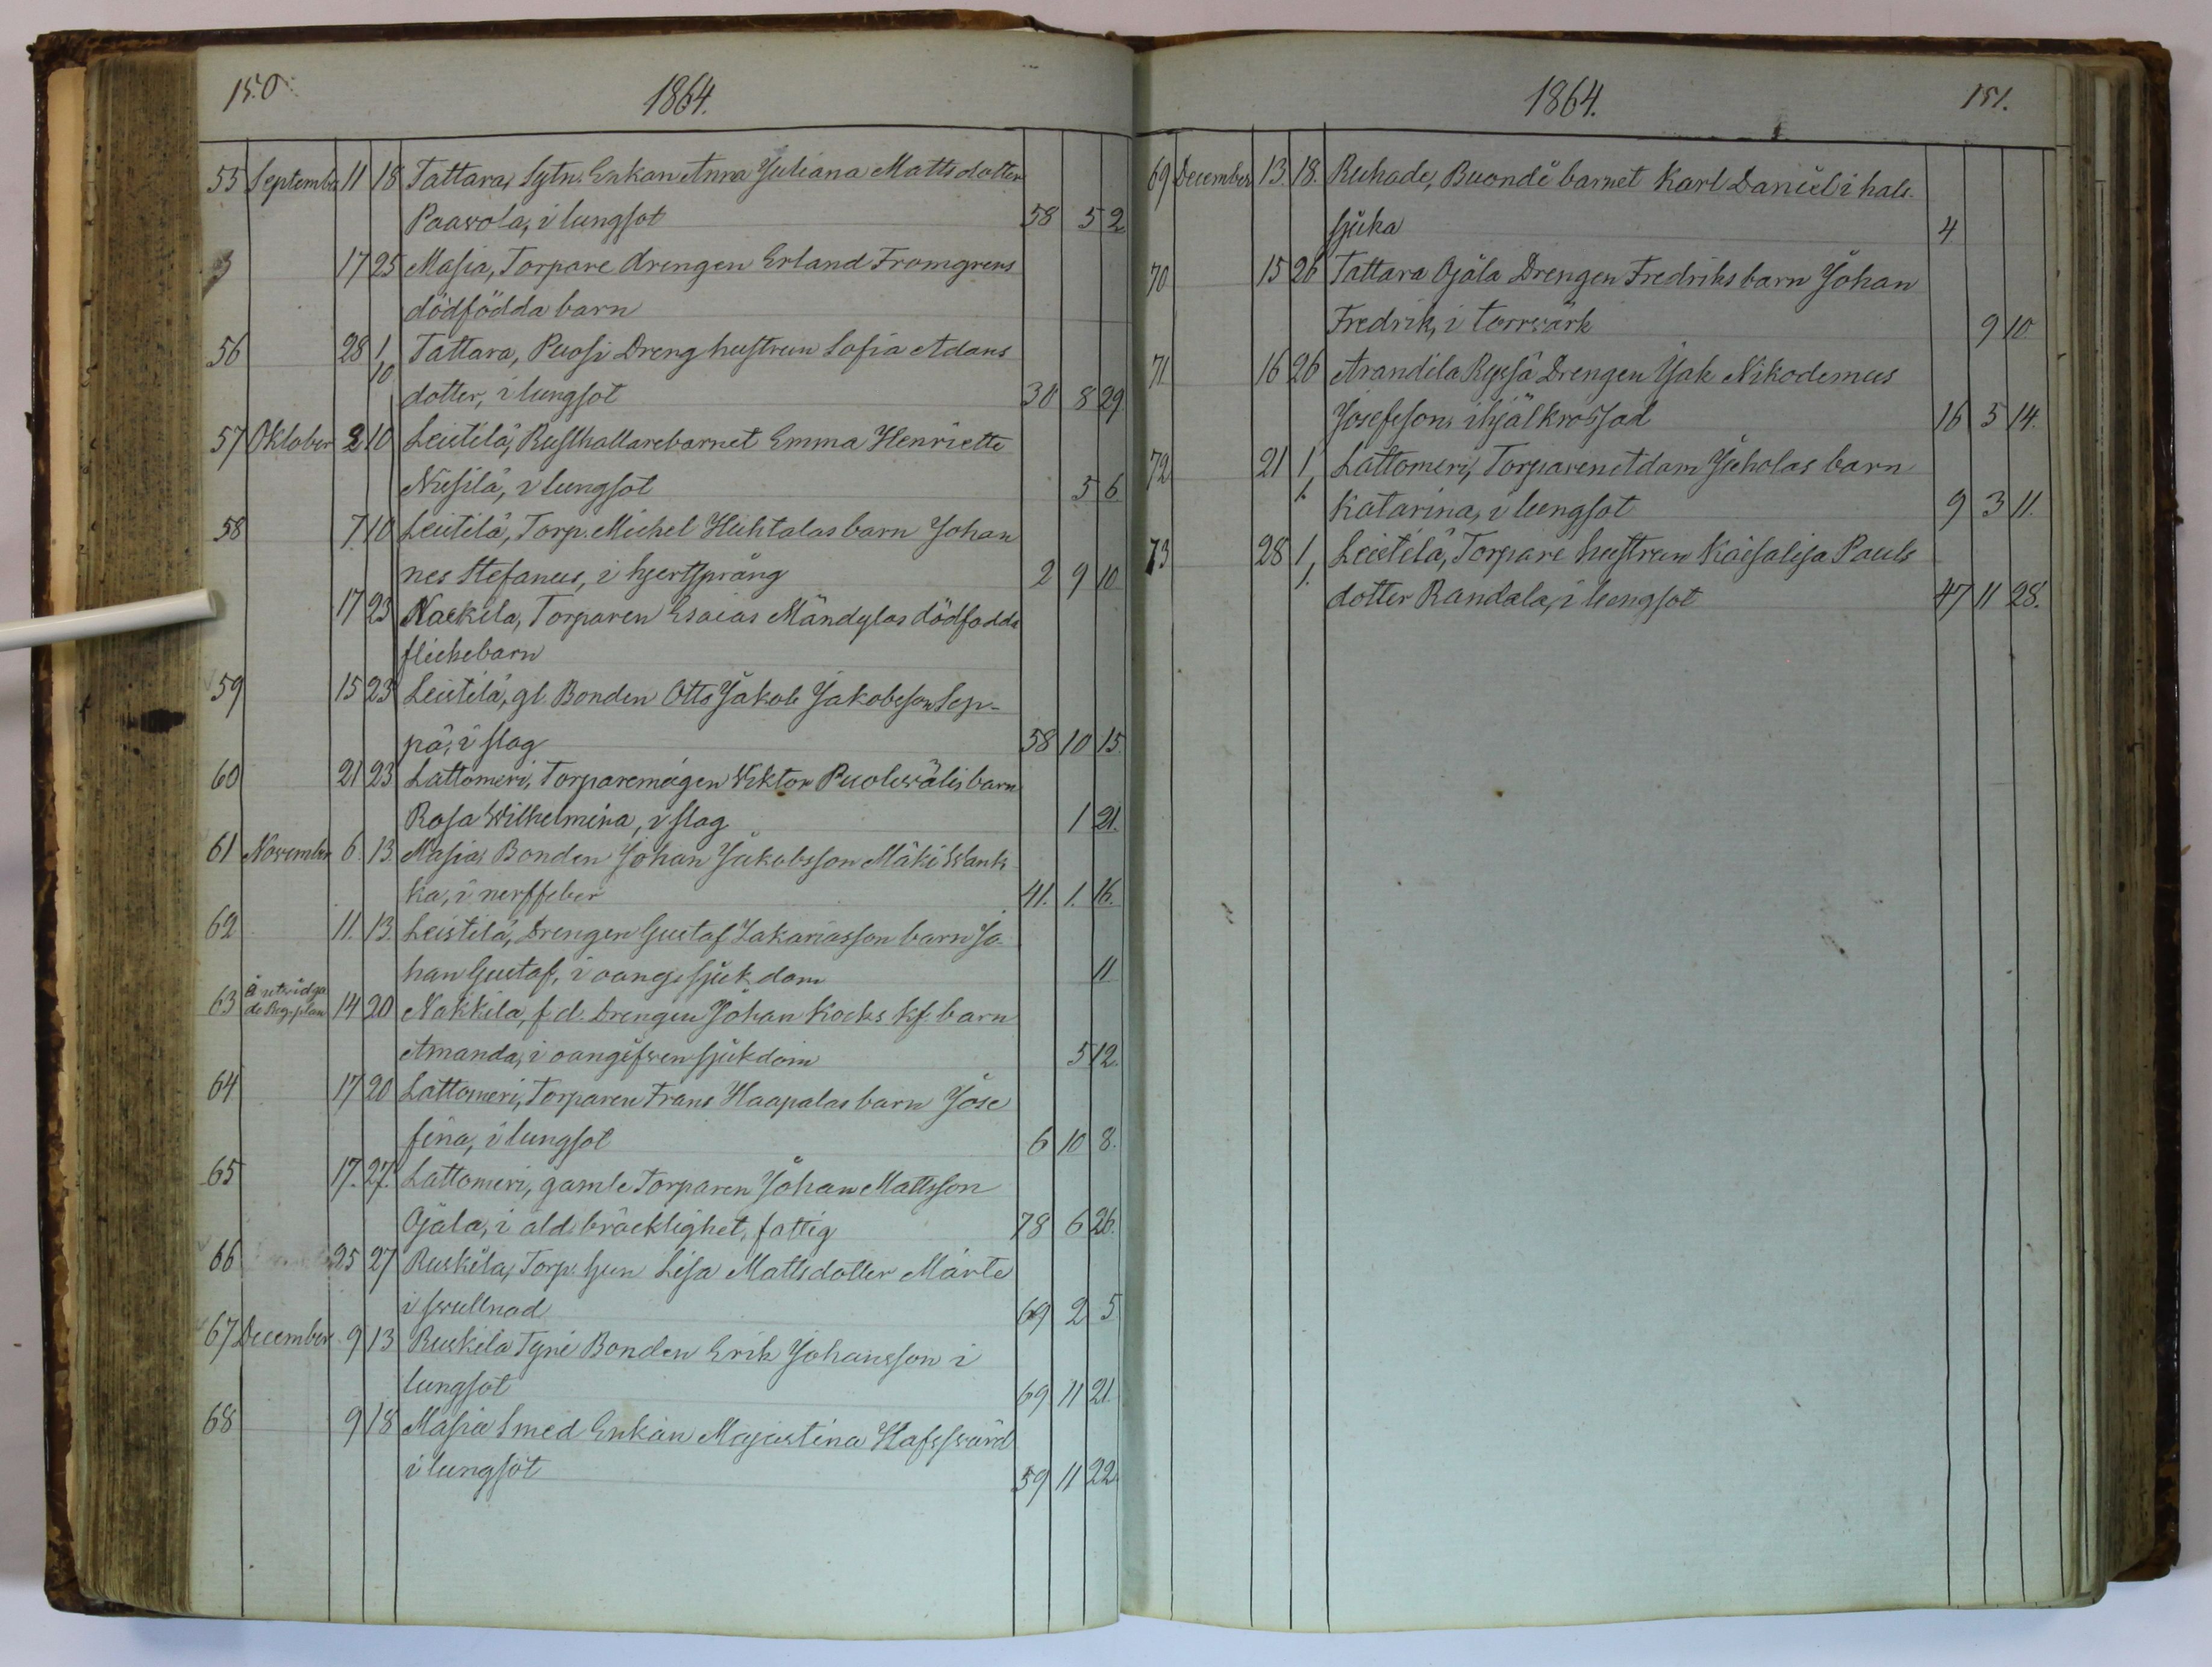 150
1864.
55 September 11 18 Tattara, Sytn. Enkan Anna Juliana Mattsdotter
Paavola, i lungsot 58 5 2
17 25 Masia, Torpare drengen Erland Fromgrens
dödfödda barn
56 28 1/10 Tattara, Puosi Dreng hustrun Sofia Adams
dotter, i lungsot 30 8 29
57 Oktober 2 10 Leistilä, Rusthallarebarnet Emma Henriette
Niusilä, i lungsot 5 6
58 7. 10 Leistilä, Torp. Michel Huhtalas barn Johan
nes Stefanus, i hjertsprång 2 9 10
17 23 Nackila, Torparen Esaias Mändylas dödfödda
flickebarn
59 15 23 Leistilä, gl. Bonden Otto Jakob Jakobsson Sep-
pä, i slag 58 10 15.
60 21 23 Lattomeri, Torparemågen Viktor Puolivälis barn
Rosa Wilhelmina, i slag 1 21.
61 November 6. 13. Masia, Bonden Johan Jakobsson Mäki Wank
ka, i nerffeber 41. 1. 16.
62 11. 13. Leistilä, Drengen Gustaf Zakariasson barn Jo
han Gustaf, i oang. sjukdom 11
63 14 20 Nakkila, f.d. Drengen Johan Kocks barn
Amanda, i oangifven sjukdom 5 12.
64 17 20 Lattomeri, Torparen Frans Haapalas barn Jose
fina, i lungsot 6 10 8.
65 17. 27. Lattomeri, gamle Torparen Johan Mattsson
Ojala, i ald. bräcklighet, fattig 78 6 26.
66 25 27 Ruskila, Torp. hun Lisa Mattsdotter Märte
i svullnad 69 2 5
67 December 9 13 Ruskila Tyni Bonden Erik Johansson i
lungsot 69 11 21.
68 9 18 Masia Smed Enkan Majastina Hafssvärd
i lungsot 59 11 22.
1864. 151.
69 December 13. 18. Ruhade, Buonde barnet Karl Daniel i hals
sjuka 4
70 15 26 Tattara Ojala Drengen Fredriks barn Johan
Fredrik, i torrvärk 9 10.
71. 16 26 Arandila Ryssä Drengen Isak Nikodemus
Josefsson, ihjälkrossad 16 5 14.
72 21 1/1. Lattomeri, Torparen Adam Juholas barn
Katarina, i lungsot 9 3 11.
73 28 1/1. Leistilä, Torpare hustrun Kaisalisa Pauls
dotter Randala, i lungsot 47 11 28.